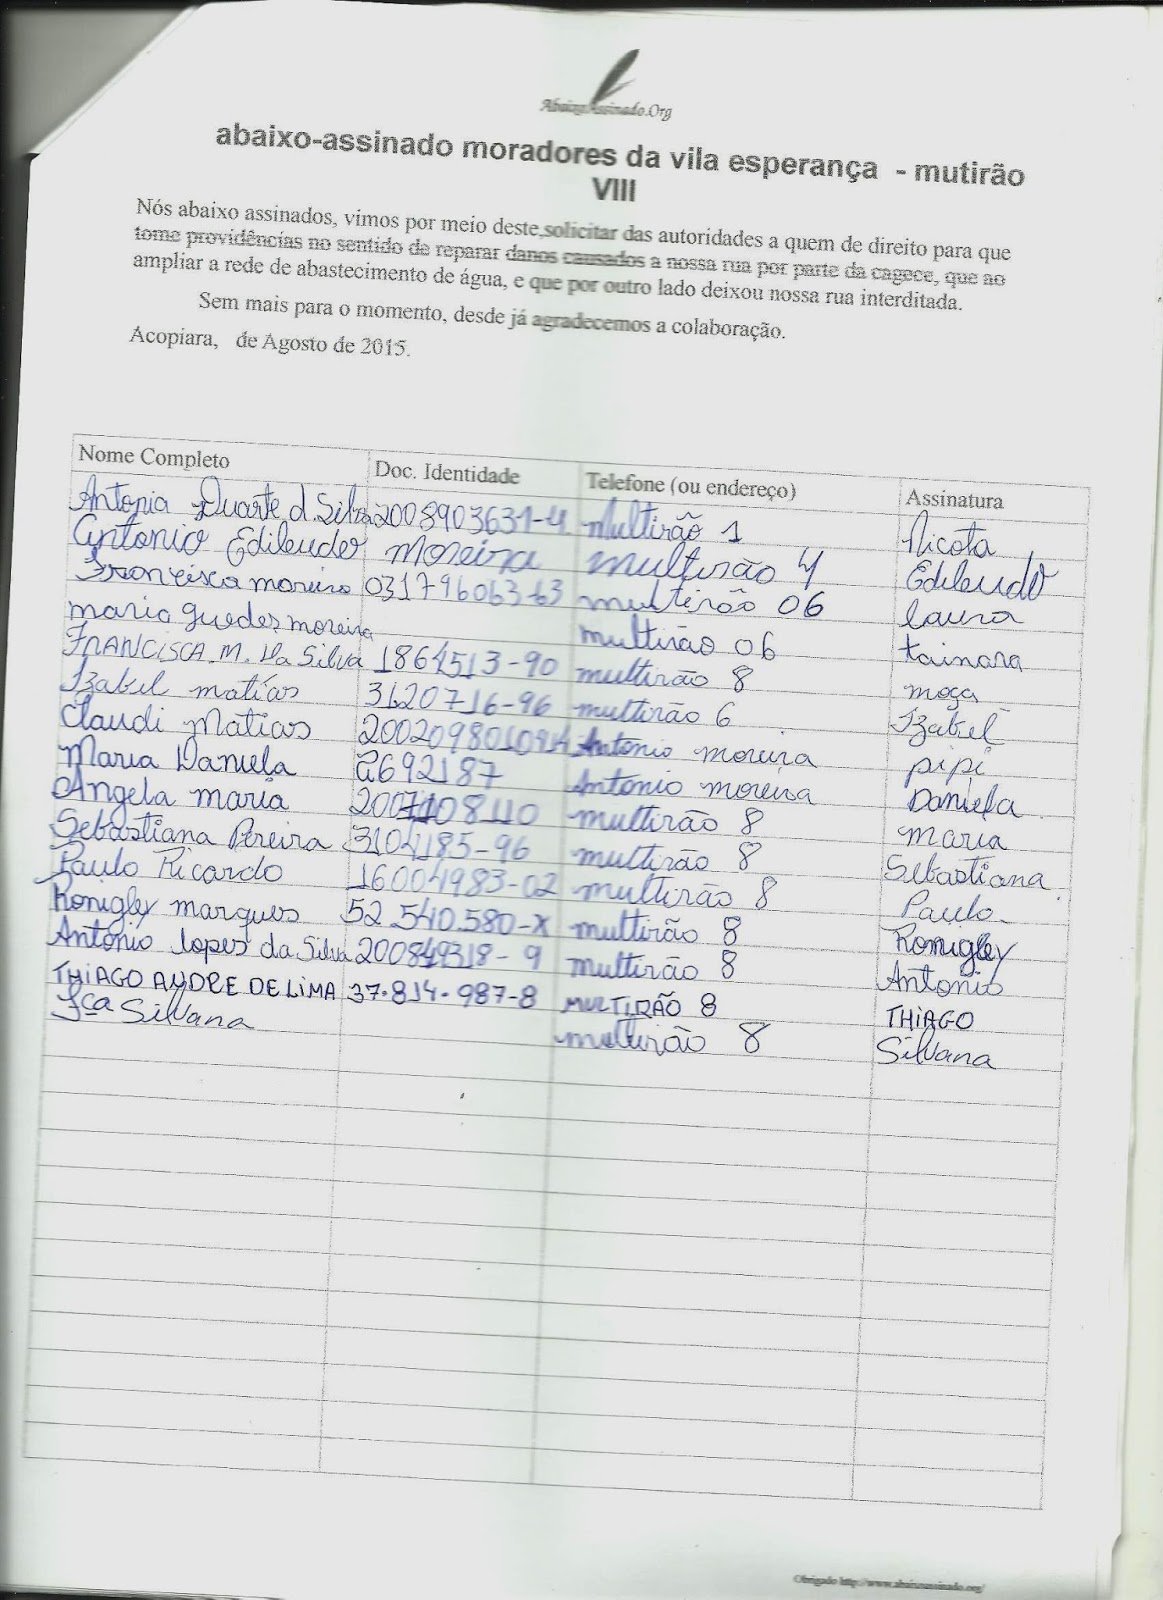 AbaixoAssinado.Org
abaixo-assinado moradores da vila esperança - mutirão
VIII
Nós abaixo assinados, vimos por meio deste,solicitar das autoridades a quem de direito para que
tome providências no sentido de reparar danos causados a nossa rua por parte da cagece, que ao
ampliar a rede de abastecimento de água, e que por outro lado deixou nossa rua interditada.
Sem mais para o momento, desde já agradecemos a colaboração.
Acopiara, de Agosto de 2015.
Nome Completo Doc. Identidade Telefone (ou endereço) Assinatura
Antonia Duarte d Silva 2008903631-4 multirão 1 Nicota
Antonio Edileudo Moreira multirão 4 Edileudo
Francisca moreira 031796063-63 multirão 06 laura
maria guedes moreira multirão 06 tainara
FRANCISCA. M. Da Silva 1864513-90 multirão 8 moça
Izabel matias 3120716-96 multirão 6 Izabel
Claudi Matias Antonio moreira pipi
Maria Daniela 2692187 Antonio moreira Daniela
Angela maria multirão 8 maria
Sebastiana Pereira 3104185-96 multirão 8 Sebastiana
Paulo Ricardo 16004983-02 multirão 8 Paulo
Ronigley marques 52.540.580-X multirão 8 Ronigley
Antonio lopes da Silva multirão 8 Antonio
THIAGO ANDRE DE LIMA 37.814.987-8 MULTIRÃO 8 THIAGO
Fca Silvana multirão 8 Silvana
Obrigado http://www.abaixoassinado.org/